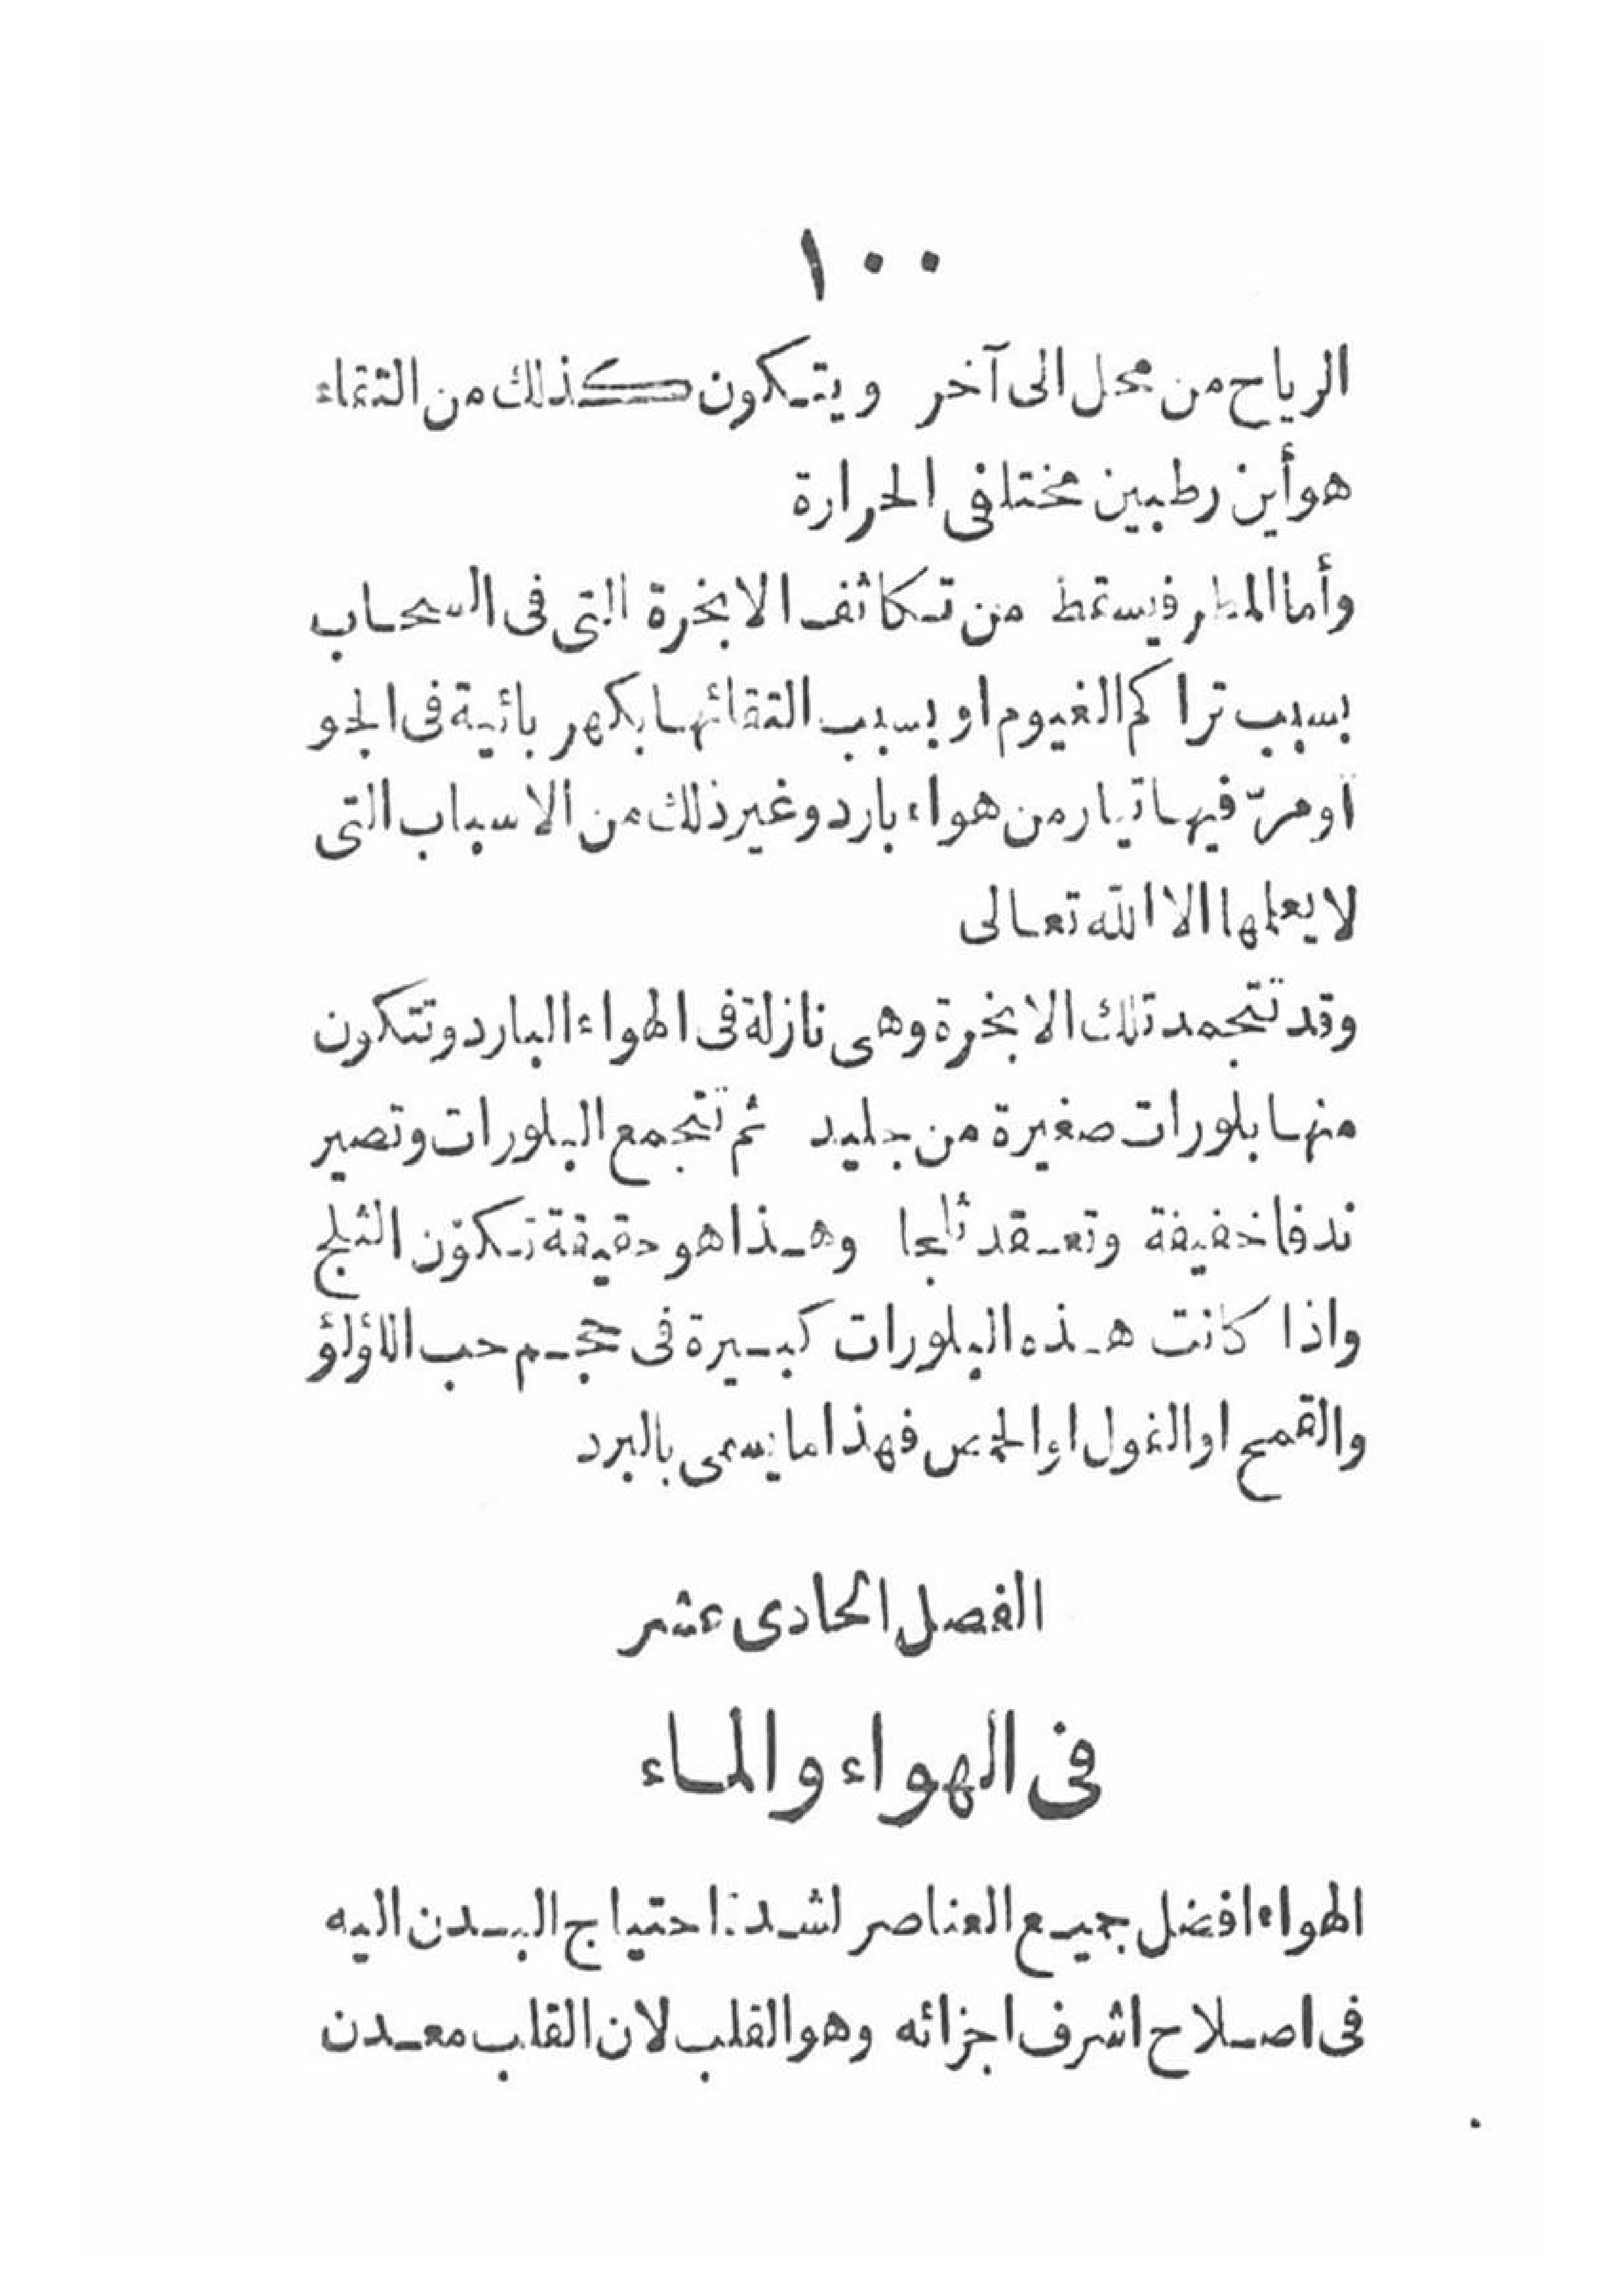 ١٠٠
الرياح من محل الى آخر ويتكون كذلك من التقاء
هوأين رطبين مختلفى الحرارة
وأما المطر فيسقط من تكاثف الابخرة التى فى السحاب
بسبب تراكم الغيوم او بسبب التقائها بكهربائية فى الجو
أو مرّ فيها تيار من هواء بارد وغير ذلك من الاسباب التى
لا يعلمها الا الله تعالى
وقد تتجمد تلك الابخرة وهى نازلة فى الهواء البارد وتتكون
منها بلورات صغيرة من جليد ثم تتجمع البلورات وتصير
ندفا خفيفة وتعقد ثلجا وهذا هو حقيقة تكوّن الثلج
واذا كانت هذه البلورات كبيرة فى حجم حب اللؤلؤ
والقمح او الفول او الحمص فهذا ما يسمى بالبرد
الفصل الحادى عشر
فى الهواء والماء
الهواء افضل جميع العناصر لشدة احتياج البدن اليه
فى اصلاح اشرف اجزائه وهو القلب لان القلب معدن